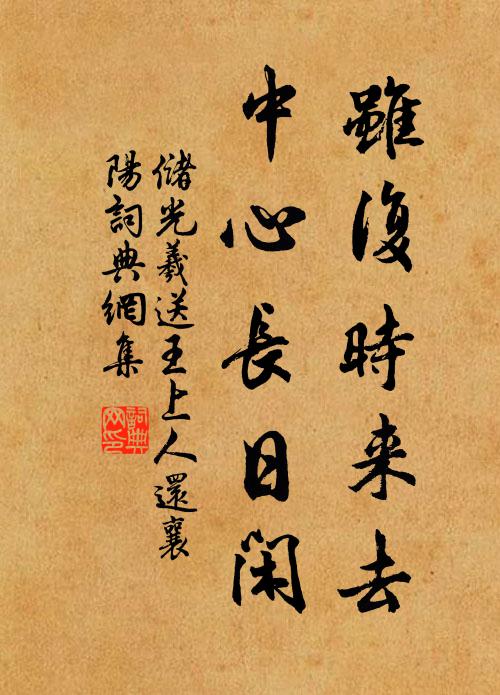 雖復時来去
中心長日閑
儲光羲送王上人還襄
陽詞典網集
詞典
网印